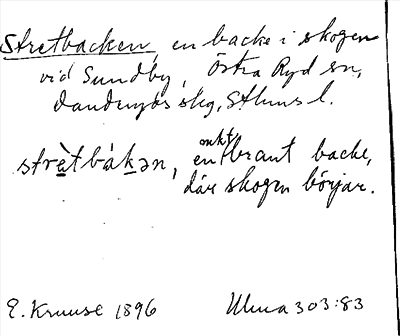 Stretbacken, en backe i skogen
vid Sundby, Östra Ryd sn,
Danderyds skg, Sthlms l.
strètbákən, en omkr brant backe,
där skogen börjar.
E. Kruuse 1896 Ulma 303:83